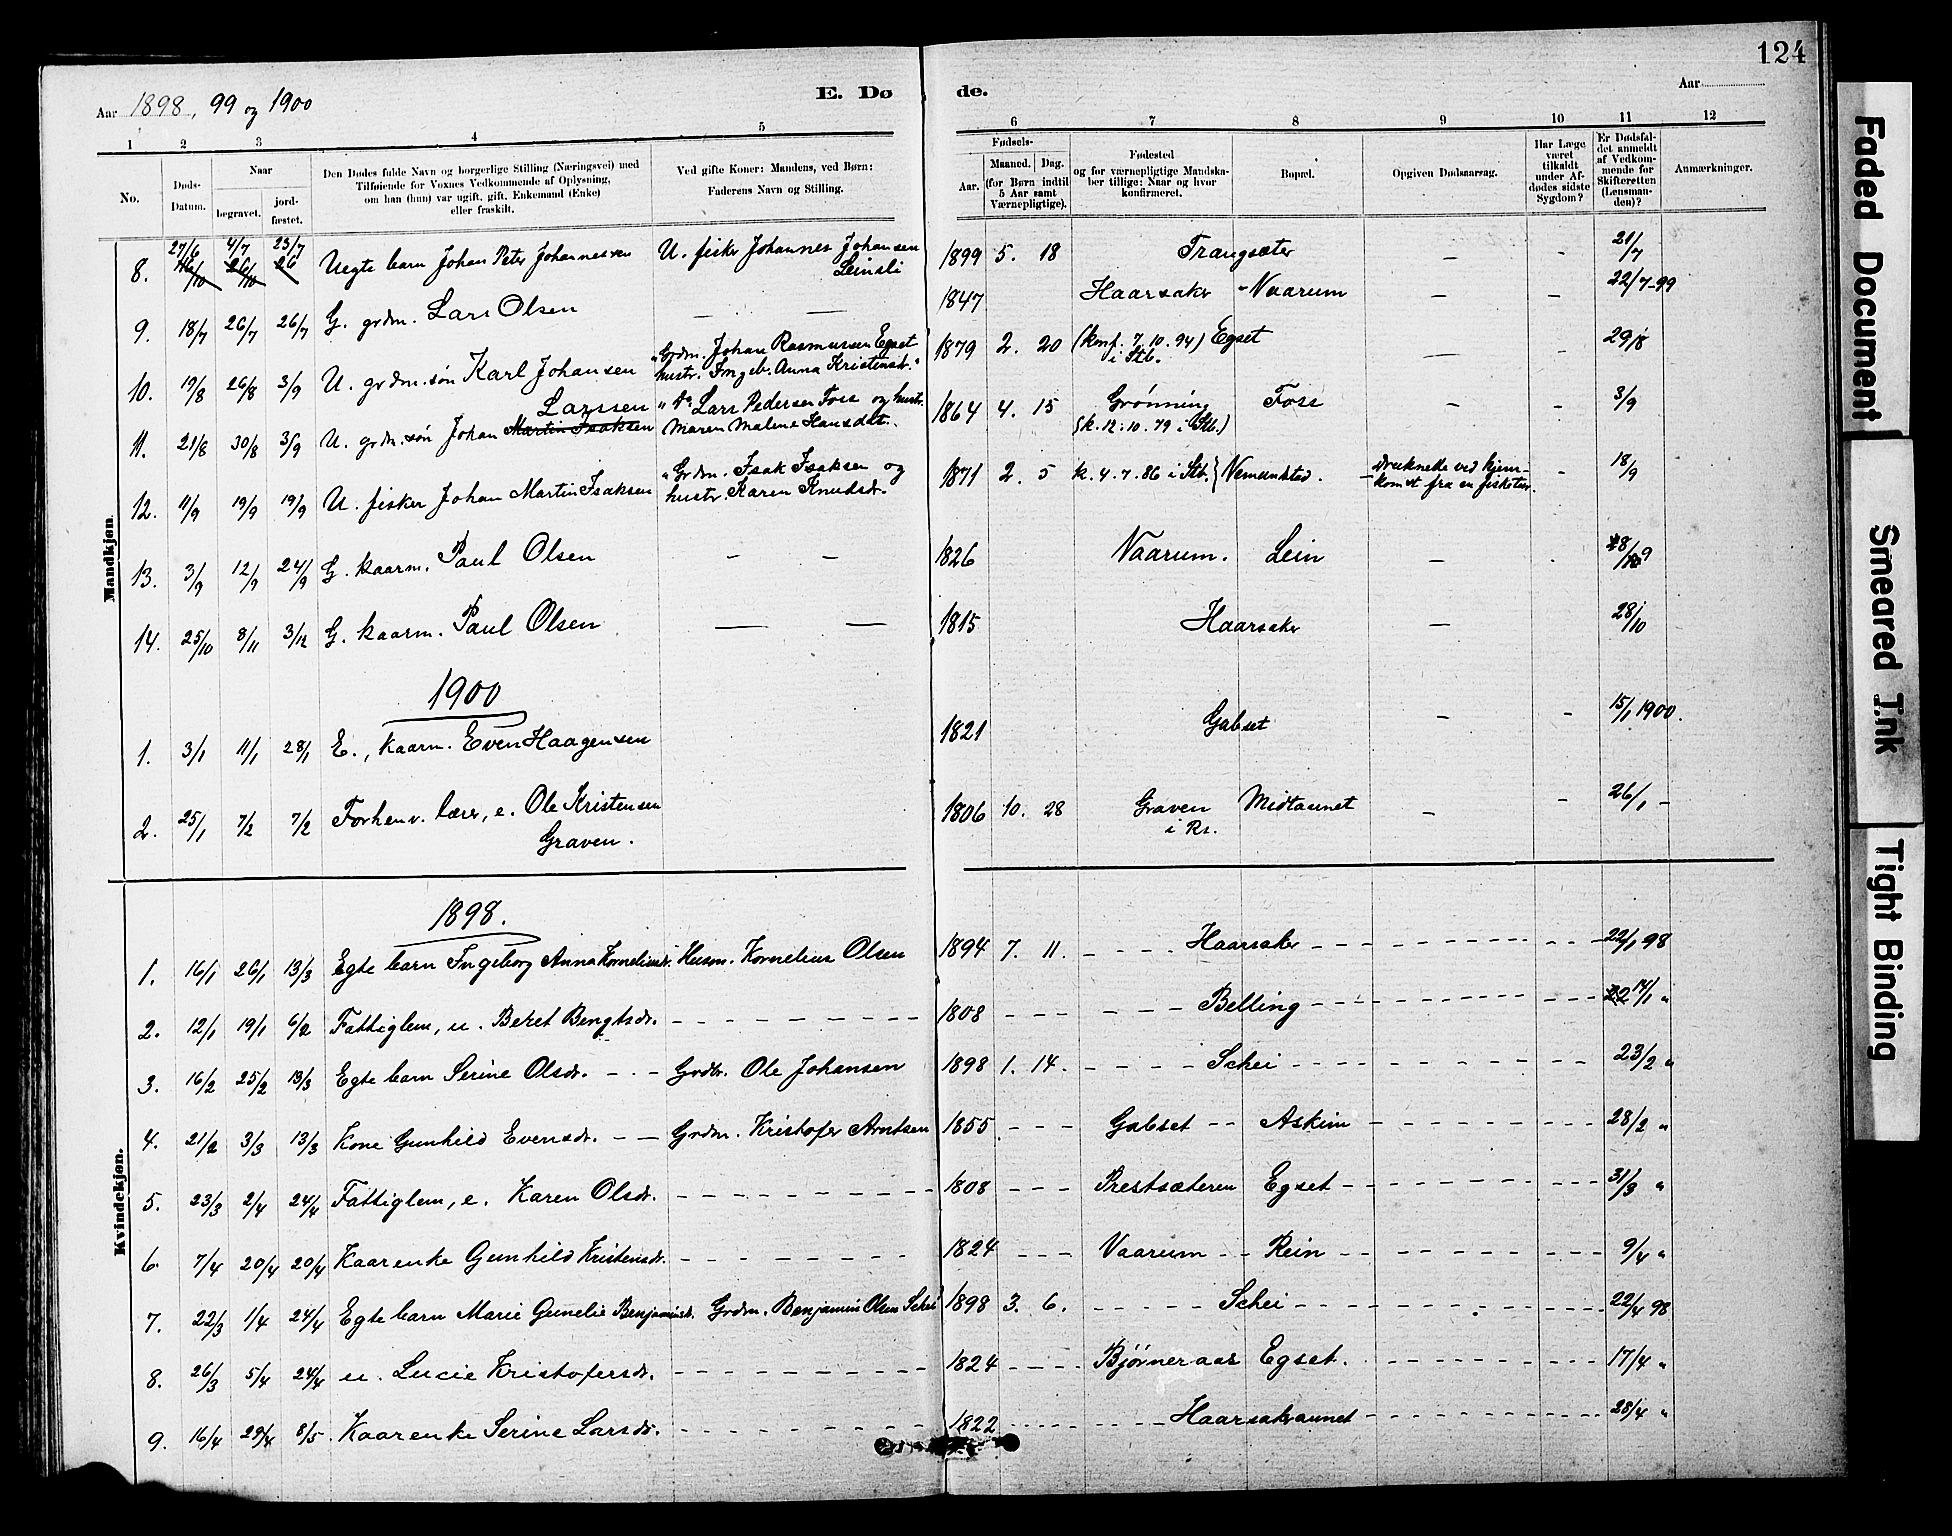 124
Aar 1898, 99 og 1900
E. Dø
de.
Aar
1 2 3 4 5 6 7 8 9 10 11 12
No.
Døds-Datum.
Naar
begravet.
jord-fæstet.
Den Dødes fulde Navn og borgerlige Stilling (Næringsvei) med
Tilføiende for Voxnes Vedkommende af Oplysning,
om han (hun) var ugift, gift, Enkemand (Enke)
eller fraskilt.
Ved gifte Koner: Mandens, ved Børn:
Faderens Navn og Stilling.
Fødsels-
Aar.
Maaned. Dag.
(for Børn indtil
5 Aar samt
Værnepligtige).
Fødested
og for værnepligtige Mandska-
ber tillige: Naar og hvor
konfirmeret.
Bopæl.
Opgiven Dødsaarsag.
Har Læge
været
tilkaldt
under Af-
dødes sidste
Sygdom?
Er Dødsfal-
det anmeldt
af Vedkom-
mende for
Skifteretten
(Lensman-
den)?
Anmærkninger.
Mandkjøn.
8. 27/6 4/7 23/7 Uegte barn Johan Peter Johannessen U. fisker Johannes Johansen Leinsli 1899 5. 18 Trangsæter - - 21/7
9. 18/7 26/7 26/7 G. grdm. Lars Olsen — — 1847 Haarsaker - Vaarum - - 22/7-99
10. 19/8 26/8 3/9 U. grdm. søn Karl Johansen "Grdm. Johan Rasmussen Egset hustr. Ingeb. Anna Kristensdr." 1879 2. 20 (konf. 7. 10. 94) i Stb. Egset - - 29/8
11. 21/8 30/8 3/9 U. grdm. søn Johan Martin Isaksen Larssen "Do Lars Pedersen Foss og hustr. Maren Malene Hansdtr. 1864 4. 15 Grønning (k. 12. 10. 79 i Stb.) Foss - - 3/9
12. 11/9 19/9 19/9 U. fisker Johan Martin Isaksen "Grdm. Isak Isaksen og hustr. Karen Knudsdr. 1871 2. 5 k. 4. 7. 86 i Stb. } Nemundstad. - Druknede ved hjem-komst fra en fisketur. - 18/9
13. 3/9 12/9 24/9 G. kaarm. Paul Olsen - - 1826 Vaarum. Lein -
14. 25/10 8/11 3/12 G. kaarm. Paul Olsen — — 1815 Haarsaker - 28/10
1900
1. 3/1 11/1 28/1 E., kaarm. Even Haagensen 1821 Gabset - - 15/1 1900.
2. 25/1 7/2 7/2 Forhenv. lærer, e. Ole Kristensen Graven. 1806 10. 28 Graven i Rs. Midtaunet - - 26/1 -
Kvindekjøn.
1898.
1. 16/1 26/1 13/3 Egte barn Ingeborg Anna Korneliusdr. Husm. Kornelius Olsen 1894 7. 11. Haarsaker 22/1 98
2. 12/1 19/1 6/2 Fattiglem, u. Beret Bengtsdr. 1808 Belling 17/1 "
3. 16/2 25/2 13/3 Egte barn Serine Olsdr. Grdbr. Ole Johansen 1898 1. 14. Schei 23/2 "
4. 21/2 3/3 13/3 Kone Gunhild Evensdr. Grdm. Kristofer Arntsen 1855 Gabset Askim 28/2 "
5. 23/3 2/4 24/4 Fattiglem, e. Karen Olsdr. 1808 Prestsæteren Egset 31/3 "
6. 7/4 20/4 20/4 Kaarenke Gunhild Kristensdr. 1824 Vaarum Rein 9/4 "
7. 22/3 1/4 24/4 Egte barn Marie Gunelie Benjaminsdr. Grdm. Benjamin Olsen Schei 1898 3. 6. Schei 22/4 98
8. 26/3 5/4 24/4 u. Lucie Kristofersdr. 1824 Bjørneraas Egset. 17/4 "
9. 16/4 29/4 8/5 Kaarenke Serine Larsdr. 1822 Haarsakeraunet 28/4 "
Faded Document
Smeared Ink
Tight Binding